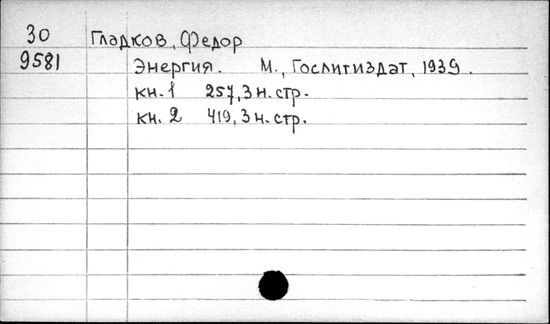 30 Гладков, Федор
9581 Энергия. М., Гослитиздат, 1939.
кн. 1 257, 3 н. стр.
кн. 2 419, 3 н. стр.